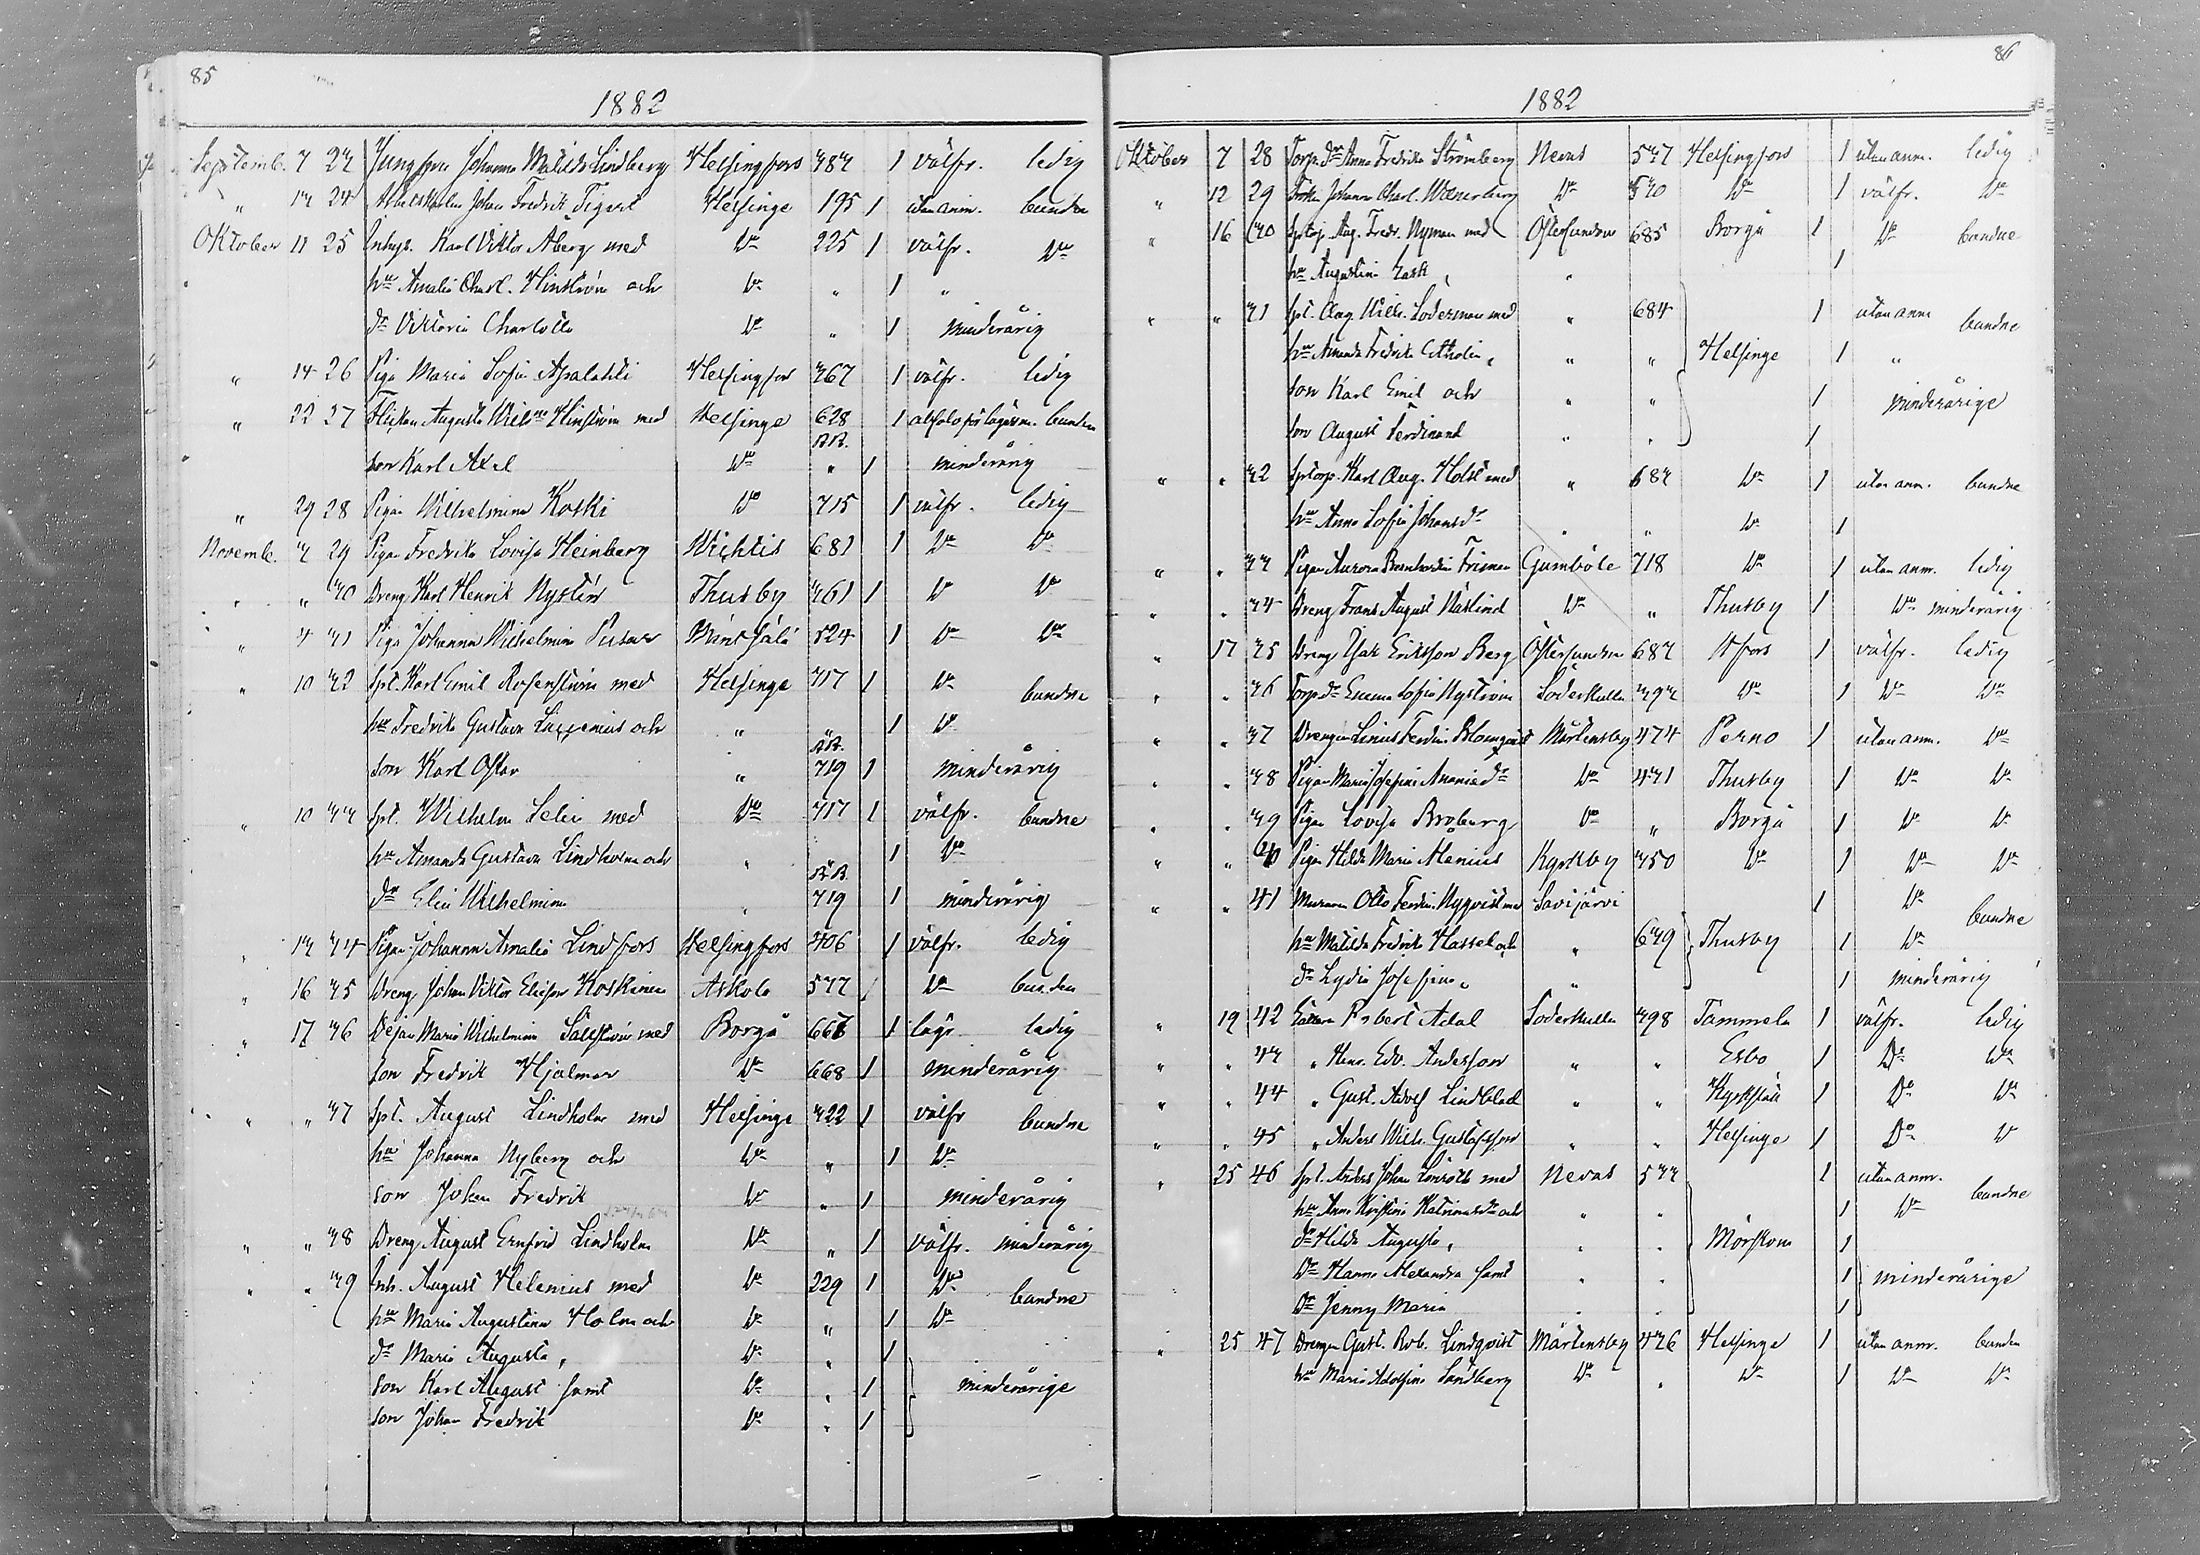 85
1882
Septemb. 7 23 Jungfrun Johanna Matilda Lindberg Helsingfors 383 1 välfr. ledig
" 13 24 Arbetskarlen Johan Fredrik Tigert Helsinge 195 1 utan anm. bunden
Oktober 11 25 Inhys. Karl Viktor Åberg med Do 225 1 välfr. Do
hu Amalia Charl. Hinström och Do " 1 "
dr Viktoria Charlotta Do " 1 minderårig
" 14 26 Piga Maria Sofia Helsingfors 367 1 välfr. ledig
" 22 27 Flickan Augusta Wilhna Hinström med Helsinge 628 1 bunden
RR.
son Karl Axel Do " 1 minderårig
" 29 28 Pigan Wilhelmina Koski Do 715 1 välfr. ledig
Novemb. 3 29 Pigan Fredrika Lovisa Heinberg Wichtis 681 1 Do Do
" " 30 Dreng Karl Henrik Nystén Thusby 361 1 Do Do
" 4 31 Piga Johanna Wilhelmina 524 1 Do Do
" 10 32 Spt. Karl Emil Rosenström med Helsinge 717 1 Do bundne
hu Fredrika Gustava och " " 1 Do
RR.
son Karl Oskar " 719 1 minderårig
" 10 33 Spt. Wilhelm Selin med Do 717 1 välfr. bundne
hu Amanda Gustava Lindholm och " 1 Do
RR.
dr Elin Wilhelmina " 719 1 minderårig
" 13 34 Pigan Johanna Amalia Lindfors Helsingfors 406 1 välfr. ledig
" 16 35 Dreng Johan Viktor Elisson Koskinen Askola 533 1 Do bunden
" 17 36 Dejan Maria Wilhelmina Sällström med Borgå 667 1 lägr. ledig
son Fredrik Hjalmar Do 668 1 minderårig
" " 37 Spt. August Lindholm med Helsinge 322 1 välfr bundne
hu Johanna Nyberg och Do " 1 Do
son Johan Fredrik Do " 1 minderårig
" " 38 Dreng August Ernfrid Lindholm Do " 1 välfr. minderårig
" " 39 Inh. August Helenius med Do 229 1 Do bundne
hu Maria Augustina Holm och Do " 1 Do
dr Maria Augusta, Do " 1
son Karl August samt Do " 1 minderårige
son Johan Fredrik Do " 1
86
1882
Oktober 7 28 Torp. dr Anna Fredrika Strömberg Nevas 537 Helsingfors 1 utan anm. ledig
" 12 29 Johanna Charl. Wenerberg Do 530 Do 1 välfr. Do
" 16 30 Sptorp. Aug. Fredr. Nyman med Östersundom 685 Borgå 1 Do bundne
hu Augustina Zask " 1
" " 31 Spt. Aug. Wilh. Söderman med " 684 1 utan anm bundne
hu Amanda Fredrika Ekholm, " " Helsinge 1 "
son Karl Emil och " " 1 minderårige
son August Ferdinand " " 1
" " 32 Sptorp. Karl Aug. Holst med " 683 Do 1 utan anm. bundne
hu Anna Sofia Johansdr " " Do 1
" " 33 Pigan Aurora Bernhardina Friman Gumböle 718 Do 1 utan anm. ledig
" " 34 Dreng Frans August Näslind Do " Thusby 1 Do minderårig
" 17 35 Dreng Isak Eriksson Berg Östersundom 683 Hfors 1 välfr. ledig
" " 36 Torp. dr Emma Sofia Nyström Söderkulla 393 Do 1 Do Do
" " 37 Drengen Linus Ferdin. Blomqvist Mårtensby 474 Perno 1 utan anm. Do
" " 38 Pigan Maria Josefina Ananiasdr Do 471 Thusby 1 Do Do
" " 39 Pigan Lovisa Broberg Do " Borgå 1 Do Do
" " 40 Pigan Hilda Maria Alenius Kyrkby 350 Do 1 Do Do
" " 41 Muraren Otto Ferdin. Nyqvist med Savijärvi 1 Do bundne
hu Matilda Fredrika Hassel och " 639 Thusby 1 Do
dr Lydia Josefina, " 1 minderårig
" 19 42 Robert Adal Söderkulla 398 Tammela 1 välfr. ledig
" " 43 " Henr. Edv. Andersson " " Esbo 1 Do Do
" " 44 " Gust. Adolf Lindblad " " Kyrkslätt 1 Do Do
" " 45 " Anders Wilh. Gustafsson " " Helsinge 1 Do Do
" 25 46 Spt. Anders Johan Lönroth med Nevas 533 1 utan anm. bundne
hu Anna Kristina Katrinasdr och " " 1 Do
dr Hilda Augusta, " " Mörskom 1
Dr Hanna Alexandra samt " " 1 minderårige
Dr Jenny Maria " " 1
" 25 47 Drengen Gust. Rob. Lindqvist Mårtensby 476 Helsinge 1 utan anm. bunden
hu Maria Adolfina Sandberg Do " Do 1 Do Do